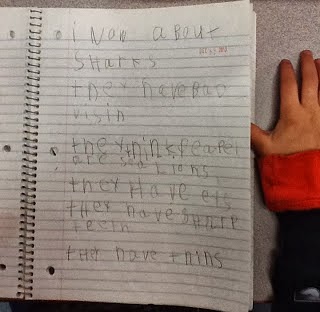 i NoW aBout
SHarks
they have Bad
visin
theythinkpeapel
are sea Lions
they Have eis
they have sharp
teeth
they have thins